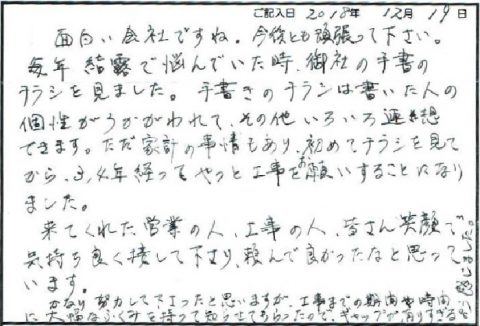 ご記入日 2018年 12月 19日
面白い会社ですね。今後とも頑張って下さい。
毎年 結露で悩んでいた時、御社の手書の
チラシを見ました。手書きのチラシは書いた人の
個性がうかがわれて、その他いろいろ連想
できます。ただ家計の事情もあり、初めてチラシを見て
から、3,4年経ってやっと工事をお願いすることになり
ました。
来てくれた営業の人、工事の人、皆さん笑顔で、
気持ち良く接して下さり、頼んで良かったなと思って
います。
かなり努力して下さったと思いますが、工事までの期間や時間
に大幅なふくみを持って知らせてもらったので、ギャップが有りすぎると